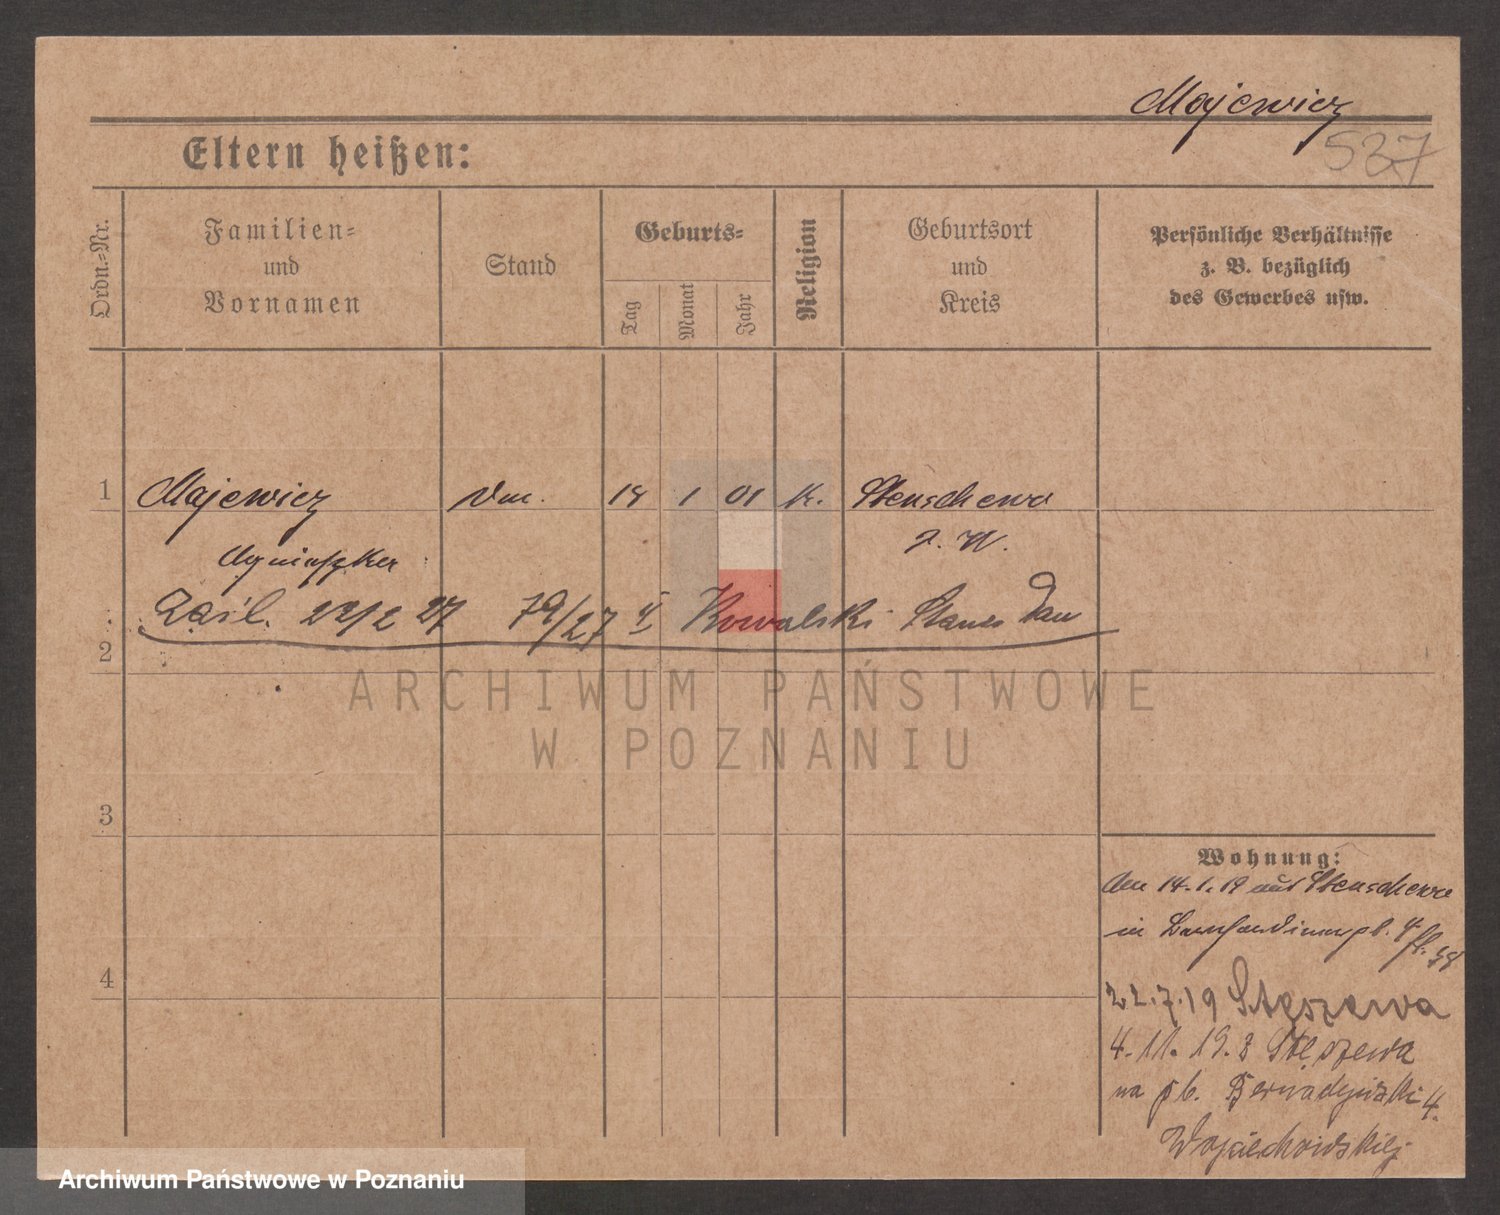 Majewicz
537
Eltern heißen:
Ordn.-Nr.
Familien-
und
Vornamen
Stand
Geburts-
Tag
Monat
Jahr
Religion
Geburtsort
und
Kreis
Persönliche Verhältnisse
z. B. bezüglich
des Gewerbes usw.
1 Majewicz 18 1 01 k. Stenschewo
Agnieszka
Zaśl. 22/2 27 79/27 Kowalski
2
ARCHIWUM PAŃSTWOWE
W POZNANIU
3
Wohnung:
14.1.19 aus Stenschewo
in 4
4
22.7.19 Stęszewa
4.11.19. z Stęszewa
na pl. 4.
Wojciechowskiej
Archiwum Państwowe w Poznaniu